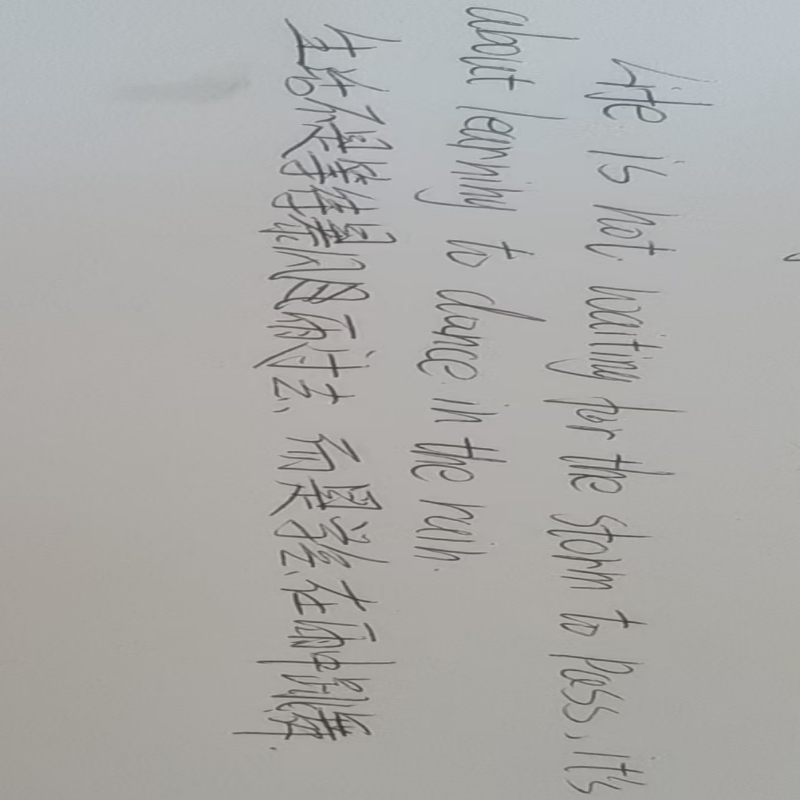 Life is not waiting for the storm to pass, it's
about learning to dance in the rain.
生活不是等待暴风雨过去, 而是学会在雨中跳舞.